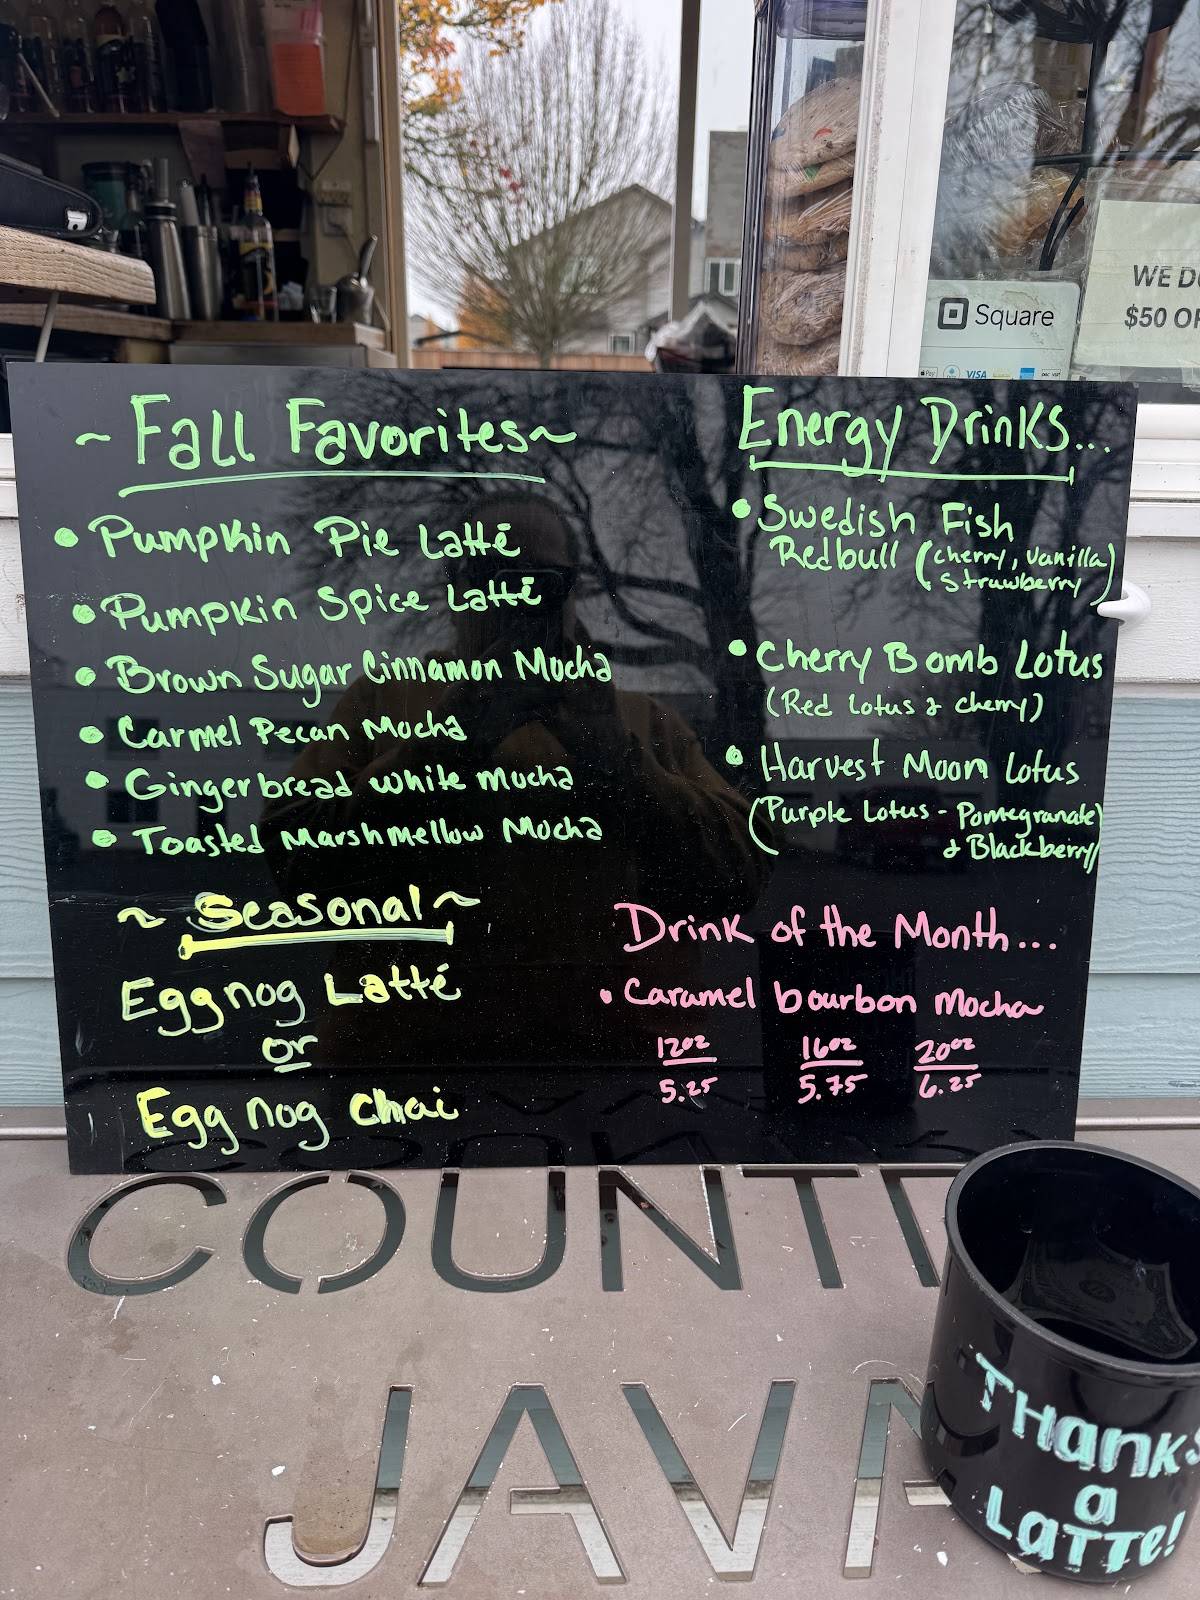 ~ Fall Favorites ~
• Pumpkin Pie Latté
• Pumpkin Spice Latté
• Brown Sugar Cinnamon Mocha
• Carmel Pecan Mocha
• Gingerbread white mocha
• Toasted Marshmellow Mocha
~ Seasonal ~
Eggnog Latté
or
Egg nog Chai
Energy Drinks...
• Swedish Fish
Redbull (cherry, vanilla
strawberry)
• Cherry Bomb Lotus
(Red Lotus & cherry)
• Harvest Moon Lotus
(Purple Lotus - Pomegranate
& Blackberry)
Drink of the Month...
• Caramel bourbon Mocha
12oz 16oz 20oz
5.25 5.75 6.25
Square
Pay VISA
WE
$50
JAVA
THanks
a
LaTTe!